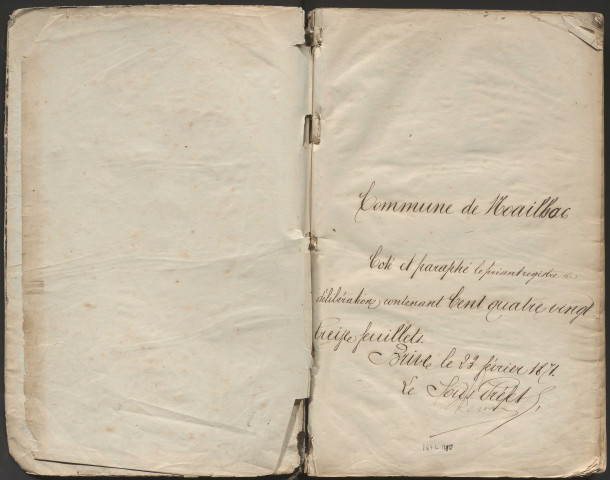 Commune de Noailhac
Coté et paraphé le présent registre de
délibération, contenant Cent quatre vingt
treize feuillets.
Brive le 23 février 1871.
Le Sous Préfet